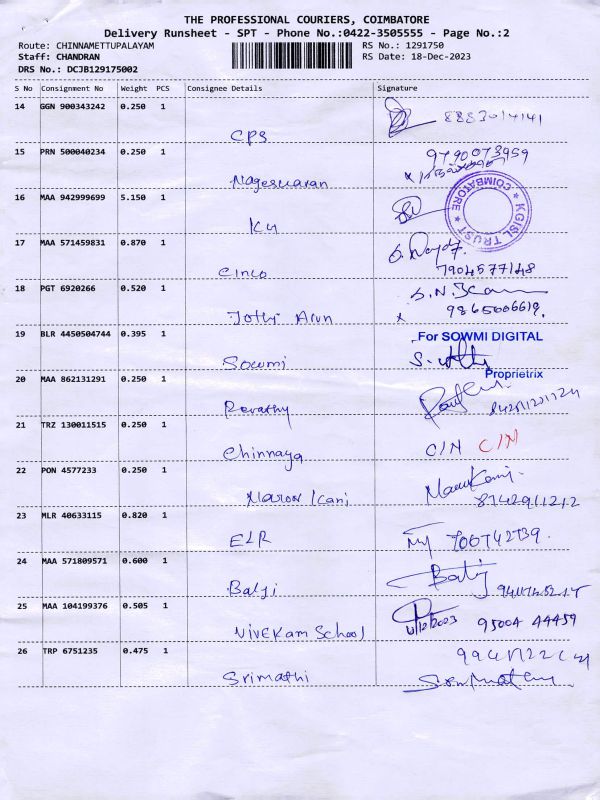 THE PROFESSIONAL COURIERS, COIMBATORE
Delivery Runsheet - SPT - Phone No.:0422-3505555 - Page No.:2
Route: CHINNAMETTUPALAYAM RS No.: 1291750
Staff: CHANDRAN RS Date: 18-Dec-2023
DRS No.: DCJB129175002
S No Consignment No Weight PCS Consignee Details Signature
14 GGN 900343242 0.250 1
CPS 8883014141
15 PRN 500040234 0.250 1 9790073959
Nageswaran
16 MAA 942999699 5.150 1
KGISL TRUST * COIMBATORE *
KU
17 MAA 571459831 0.870 1
Cinco 7904577148
18 PGT 6920266 0.520 1
Jothi Arun x 9865006618.
19 BLR 4450504744 0.395 1 For SOWMI DIGITAL
Sowmi
Proprietrix
20 MAA 862131291 0.250 1
Revathy
21 TRZ 130011515 0.250 1
Chinnaya C/N C/N
22 PON 4577233 0.250 1
Maron Kani 8742911212
23 MLR 40633115 0.820 1
ELR
24 MAA 571809571 0.600 1
Balji Balij
25 MAA 104199376 0.505 1
Vivekam School 95004 44459
26 TRP 6751235 0.475 1
Srimathi